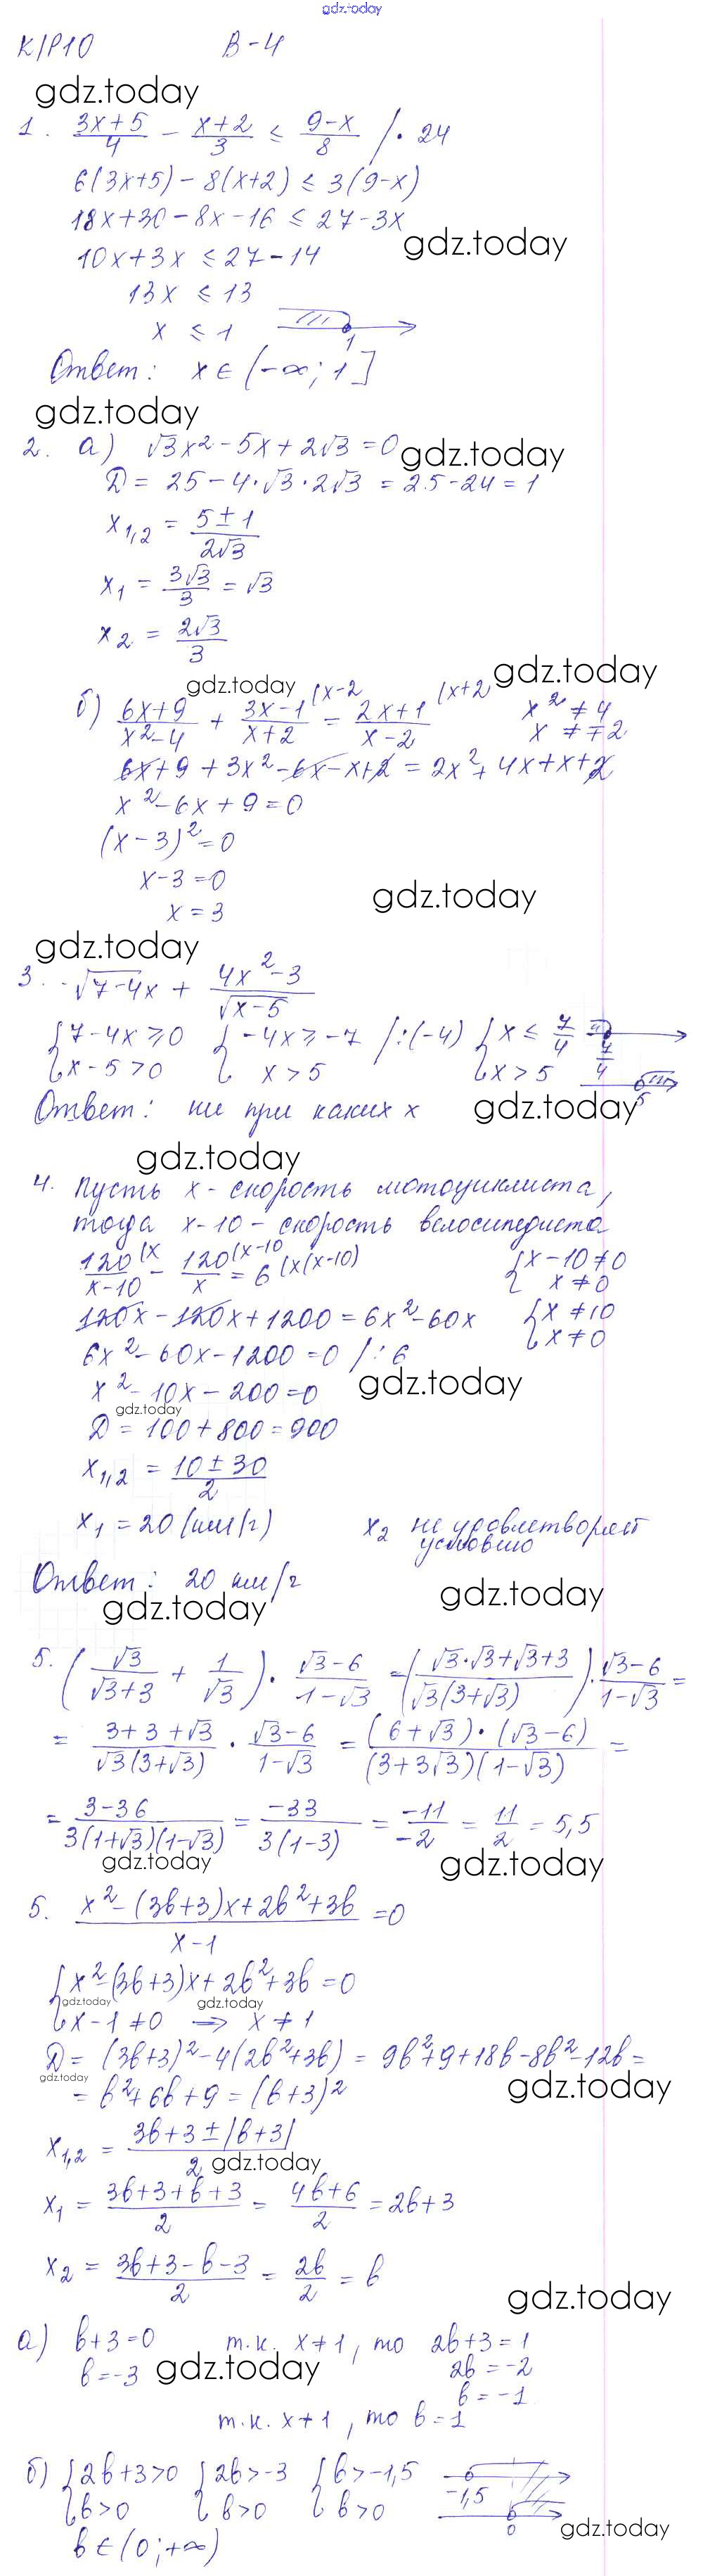 gdz.today
К/Р10 В-4
gdz.today
1. (3x+5)/4 - (x+2)/3 ≤ (9-x)/8 /· 24
6(3x+5) - 8(x+2) ≤ 3(9-x)
18x+30-8x-16 ≤ 27-3x
gdz.today
10x+3x ≤ 27-14
13x ≤ 13
x ≤ 1
1
Ответ: x ∈ (-∞; 1]
gdz.today
2. а) √3x²-5x+2√3=0
gdz.today
Д = 25-4·√3·2√3 = 25-24=1
x₁,₂ = (5±1)/(2√3)
x₁ = 3√3/3 = √3
x₂ = 2√3/3
gdz.today gdz.today
б) (6x+9)/(x²-4) + (3x-1)/(x+2) (x-2 = (2x+1)/(x-2) (x+2) x² ≠ 4
x ≠ ∓2
6x+9+3x²-6x-x+2 = 2x²+4x+x+2
x²-6x+9=0
(x-3)²=0
x-3=0
gdz.today
x=3
gdz.today
3. √(7-4x) + (4x²-3)/√(x-5)
{7-4x≥0 {-4x≥-7 /:(-4) {x ≤ 7/4 7/4
{x-5>0 { x>5 {x>5 5
Ответ: ни при каких x gdz.today
gdz.today
4. Пусть x - скорость мотоциклиста,
тогда x-10 - скорость велосипедиста
120/(x-10) (x - 120/x (x-10 = 6 (x(x-10) {x-10≠0
{ x≠0
120x-120x+1200=6x²-60x {x≠10
{x≠0
6x²-60x-1200=0 /:6
x²-10x-200=0 gdz.today
gdz.today
Д=100+800=900
x₁,₂ = (10±30)/2
x₁=20 (км/г) x₂ не удовлетворяет
условию
Ответ: 20 км/г
gdz.today gdz.today
5. (√3/(√3+3) + 1/√3) · (√3-6)/(1-√3) = ((√3·√3+√3+3)/(√3(3+√3))) · (√3-6)/(1-√3) =
= (3+3+√3)/(√3(3+√3)) · (√3-6)/(1-√3) = ((6+√3)·(√3-6))/((3+3√3)(1-√3)) =
= (3-36)/(3(1+√3)(1-√3)) = -33/(3(1-3)) = -11/-2 = 11/2 = 5,5
gdz.today gdz.today
5. (x²-(3b+3)x+2b²+3b)/(x-1) =0
{x²-(3b+3)x+2b²+3b=0
gdz.today gdz.today
{x-1≠0 → x≠1
Д = (3b+3)²-4(2b²+3b) = 9b²+9+18b-8b²-12b=
gdz.today gdz.today
= b²+6b+9=(b+3)²
x₁,₂ = (3b+3±|b+3|)/2
gdz.today
x₁ = (3b+3+b+3)/2 = (4b+6)/2 = 2b+3
x₂ = (3b+3-b-3)/2 = 2b/2 = b
gdz.today
а) b+3=0 т.к. x≠1, то 2b+3=1
b=-3 gdz.today 2b=-2
b=-1
т.к. x≠1, то b=1
б) {2b+3>0 {2b>-3 {b>-1,5
{b>0 { b>0 { b>0 -1,5
0
gdz.today
b∈(0;+∞)